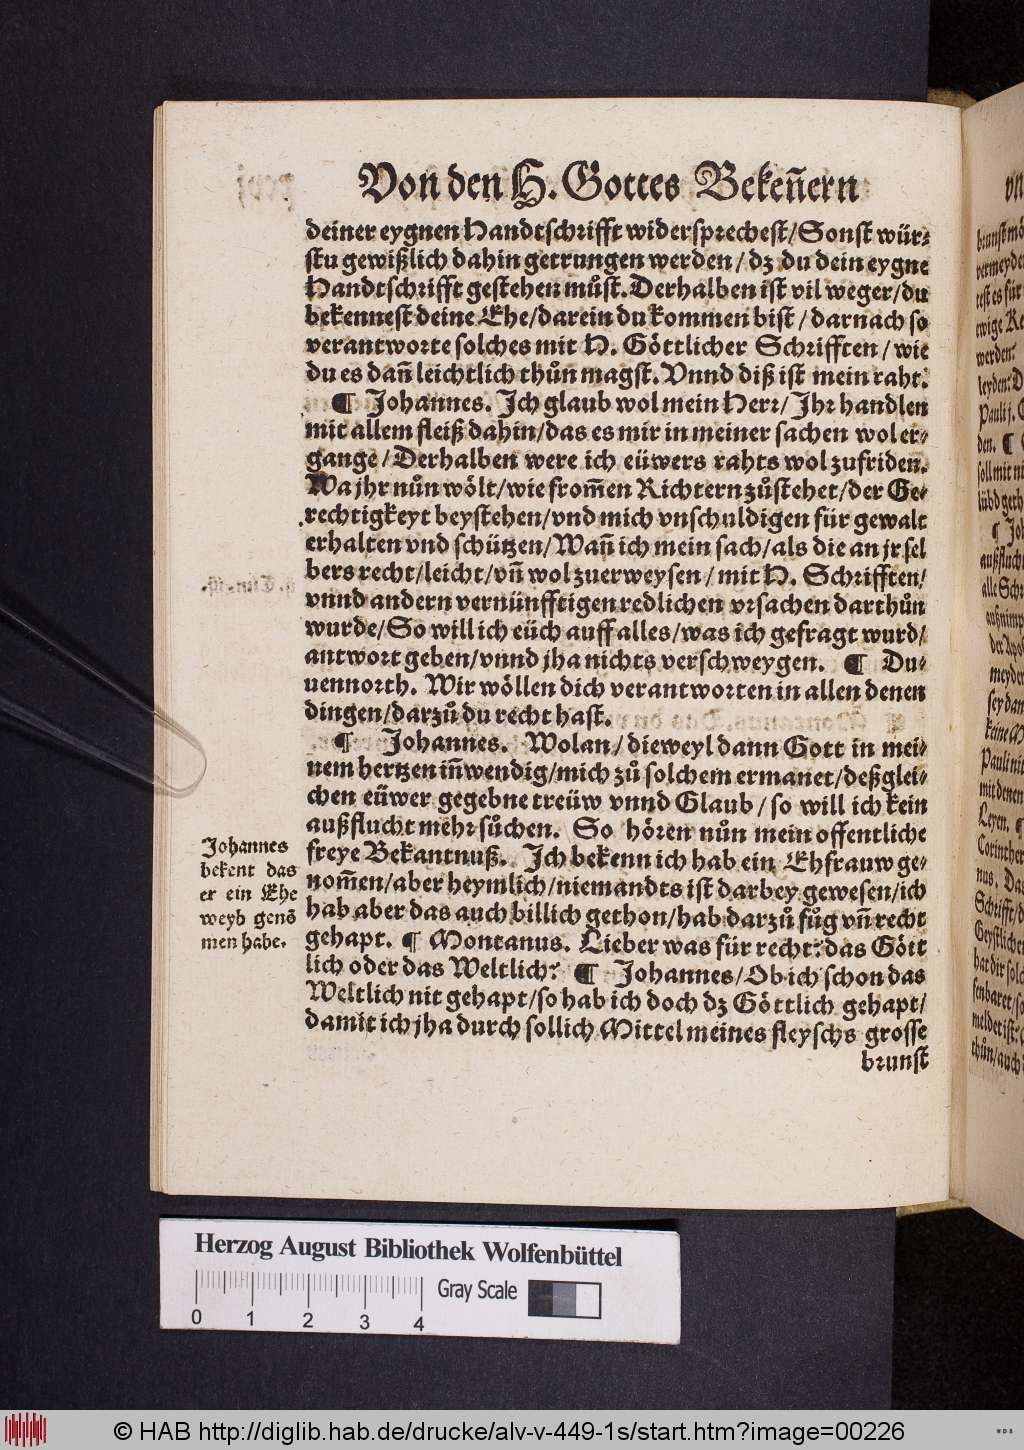 Von den H. Gottes Bekeñern
deiner eygnen Handtschrifft widersprechest/Sonst wür-
stu gewißlich dahin getrungen werden/ dz du dein eygne
Handtschrifft gestehen můst. Derhalben ist vil weger/du
bekennest deine Ehe/darein du kommen bist/ darnach so
verantworte solches mit H. Göttlicher Schrifften/ wie
du es dañ leichtlich thůn magst. Vnnd diß ist mein raht.
¶ Johannes. Ich glaub wol mein Herr/ Ihr handlen
mit allem fleiß dahin/das es mir in meiner sachen wol er-
gange/ Derhalben were ich eüwers rahts wol zufriden.
Wa jhr nůn wölt/wie from̃en Richtern zůstehet/der Ge-
rechtigkeyt beystehen/vnd mich vnschuldigen für gewalt
erhalten vnd schützen/Wañ ich mein sach/als die an jr sel
bers recht/leicht/vñ wol zuerweysen/ mit H. Schrifften/
vnnd andern vernünfftigen redlichen vrsachen darthůn
wurde/So will ich eüch auff alles/was ich gefragt wurd/
antwort geben/vnnd jha nichts verschweygen. ¶ Du-
uennorth. Wir wöllen dich verantworten in allen denen
dingen/darzů du recht hast.
¶ Johannes. Wolan/ dieweyl dann Gott in mei-
nem hertzen iñwendig/mich zů solchem ermanet/deßglei-
chen eüwer gegebne treüw vnnd Glaub/ so will ich kein
außflucht mehr sůchen. So hören nůn mein offentliche
freye Bekantnuß. Ich bekenn ich hab ein Ehfrauw ge-
nom̃en/aber heymlich/niemandts ist darbey gewesen/ich
hab aber das auch billich gethon/hab darzů fůg vñ recht
gehapt. ¶ Montanus. Lieber was für recht? das Gött
lich oder das Weltlich? ¶ Johannes/Ob ich schon das
Weltlich nit gehapt/so hab ich doch dz Göttlich gehapt/
damit ich jha durch sollich Mittel meines fleyschs grosse
brunst
Johannes
bekent das
er ein Ehe
weyb genõ
men habe.
Herzog August Bibliothek Wolfenbüttel
Gray Scale
0 1 2 3 4
© HAB http://diglib.hab.de/drucke/alv-v-449-1s/start.htm?image=00226